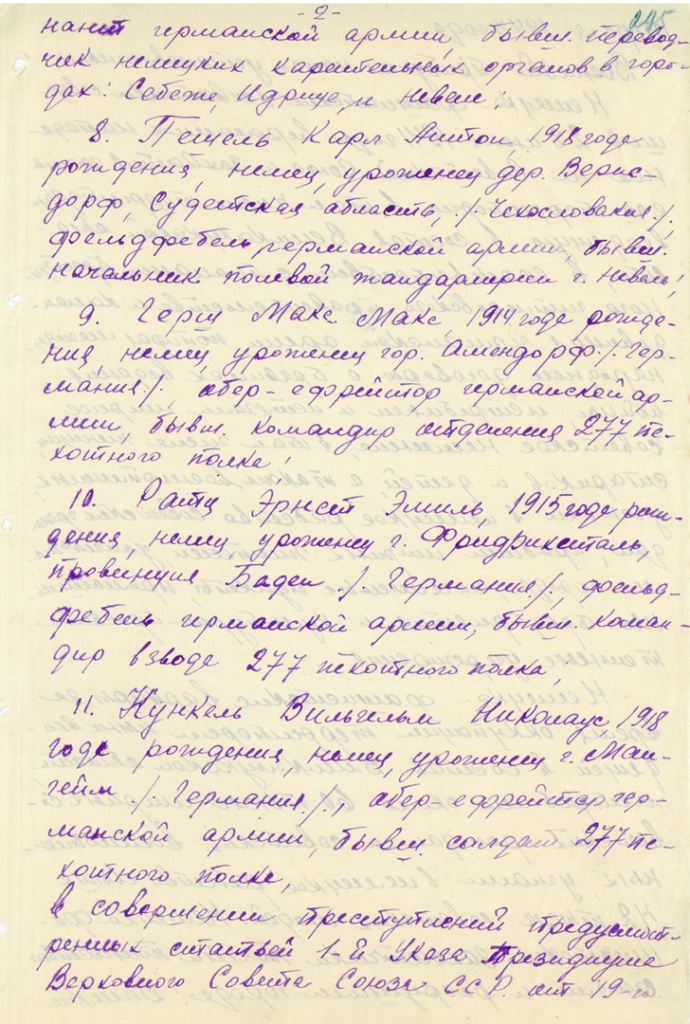 -2- 245
нант германской армии, бывш. перевод-
чик немецких карательных органов в горо-
дах: Себеже, Идрице, и Невель;
8. Пешель Карл Антон, 1918 года
рождения, немец, уроженец дер. Вериc-
дорф, Судетская область, /Чехословакия/,
фельдфебель германской армии, бывш.
начальник полевой жандармерии г. Невель;
9. Герш Макс Макс, 1914 года рожде-
ния, немец, уроженец гор. Амендорф /Гер-
мания/ обер-ефрейтор германской ар-
мии бывш. командир отделения 277 пе-
хотного полка;
10. Ратц Эрнст Эмиль, 1915 года рож-
дения, немец, уроженец г. Фридрихсталь,
провинция Баден /Германия/. фельд-
фебель германской армии, бывш. коман-
дир взвода 277 пехотного полка;
11. Кункель Вильгельм Николаус 1918
года рождения, немец, уроженец г. Ман-
гейм /Германия/, обер-ефрейтор гер-
манской армии, бывш. солдат 277 пе-
хотного полка,
в совершении преступлений предусмот-
ренных статьей 1-й Указа Президиума
Верховного Совета Союза ССР от 19-го